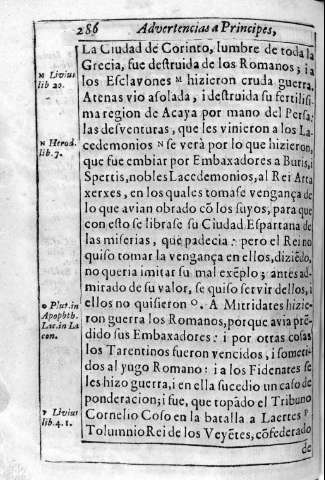 286 Advertencias a Principes,
La Ciudad de Corinto, lumbre de toda la
Grecia, fue destruida de los Romanos; i a
los Esclavones ᴹ hizieron cruda guerra.
Atenas vio asolada, i destruida su fertilisi-
ma region de Acaya por mano del Persa:
las desventuras, que les vinieron a los La-
cedemonios ᴺ se verà por lo que hizieron,
que fue embiar por Embaxadores a Buris, i
Spertis, nobles Lacedemonios, al Rei Arta
xerxes, en los quales tomase vengança de
lo que avian obrado cõ los suyos, para que
con esto se librase su Ciudad Espartana de
las miserias, que padecia: pero el Rei no
quiso tomar la vengança en ellos, diziẽdo,
no queria imitar su mal exẽplo; antes ad-
mirado de su valor, se quiso servir dellos, i
ellos no quisieron ᴼ. A Mitridates hizie-
ron guerra los Romanos, porque avia pre-
dido sus Embaxadores: i por otras cosas
los Tarentinos fueron vencidos, i someti-
dos al yugo Romano: i a los Fidenates se
les hizo guerra, i en ella sucedio un caso de
ponderacion; i fue, que topãdo el Tribuno
Cornelio Coso en la batalla a Laertes ᴾ
Tolumnio Rei de los Veyẽtes, cõfederado
de
M Livius
lib 20.
N Herod.
lib. 7.
o Plut. in
Apophth.
Lac. in La
con.
P Livius
lib. 4. 1.